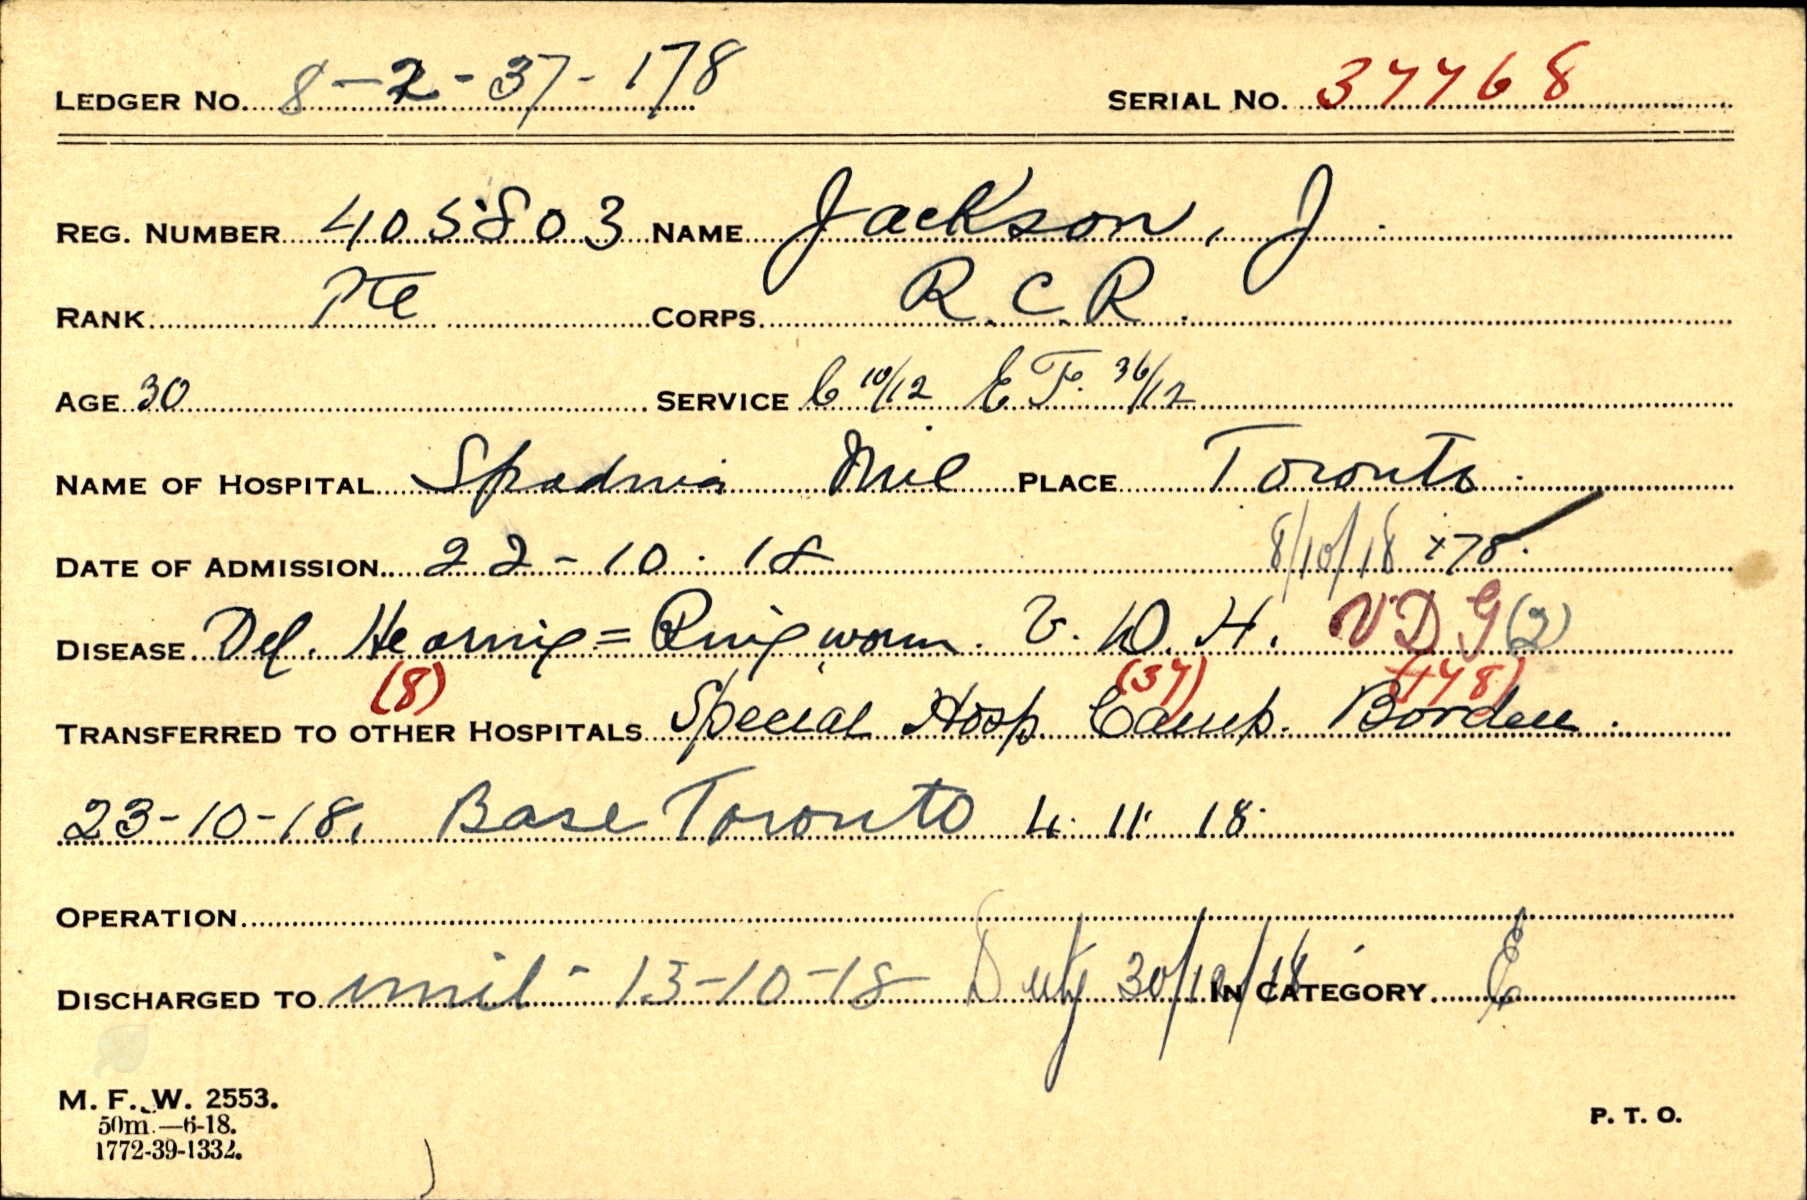 LEDGER NO. 8-2-37-178 SERIAL NO. 37768
REG. NUMBER 405803 NAME Jackson, J.
RANK Pte CORPS R.C.R.
AGE 30 SERVICE C 10/12 E F. 36/12
NAME OF HOSPITAL Spadina Mil PLACE Toronto.
DATE OF ADMISSION 22-10-18 8/10/18 178.
DISEASE Def. Hearing = Ringworm. V. D. H. V D G (2)
(8) (37) (178)
TRANSFERRED TO OTHER HOSPITALS Special Hosp Camp. Borden.
23-10-18. Base Toronto 4. 11. 18.
OPERATION
DISCHARGED TO 13-10-18 Duty 30/12/18 IN CATEGORY E
M. F. W. 2553.
50m.—6-18.
1772-39-1332.
P. T. O.